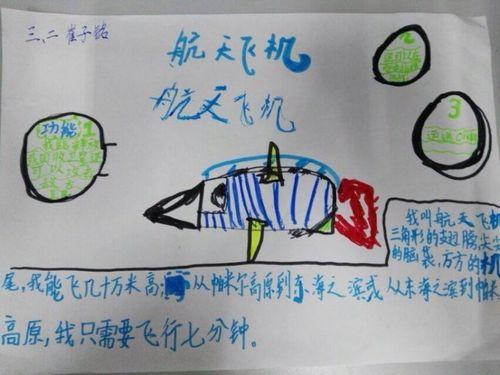 三、二 崔子铭
航天飞机
航天飞机
功能1
我能释放
我回收卫星还
可以放去
故去
2
3
运送
我叫航天飞机
三角形的翅膀,尖尖
的脑袋,方方的机
尾,我能飞几十万米高,从帕米尔高原到东海之滨或从东海之滨到帕米尔
高原,我只需要飞行七分钟。